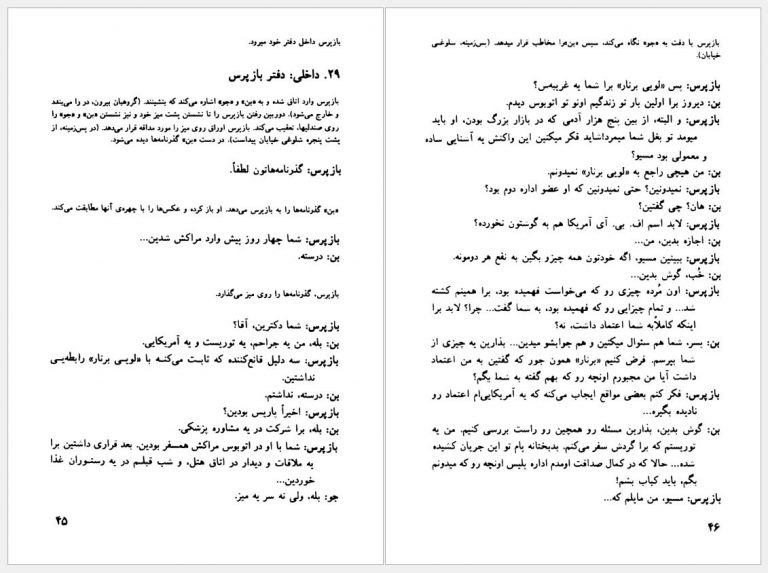 بازپرس داخل دفتر خود میرود.
۲۹. داخلی: دفتر بازپرس
بازپرس وارد اتاق شده و به «بن» و «جو» اشاره می‌کند که بنشینند. (گروهبان بیرون، در را می‌بندد
و خارج می‌شود). دوربین رفتن بازپرس را تا نشستن پشت میز خود و نیز نشستن «بن» و «جو» را
روی صندلیها، تعقیب می‌کند. بازپرس اوراق روی میز را مورد مداقه قرار می‌دهد. (در پس‌زمینه، از
پشت پنجره شلوغی خیابان پیداست). در دست «بن» گذرنامه‌ها دیده می‌شود.
بازپرس: گذرنامه‌هاتون لطفاً.
«بن» گذرنامه‌ها را به بازپرس می‌دهد. او باز کرده و عکس‌ها را با چهره‌ی آنها مطابقت می‌کند.
بازپرس: شما چهار روز پیش وارد مراکش شدین...
بن: درسته.
بازپرس، گذرنامه‌ها را روی میز می‌گذارد.
بازپرس: شما دکترین، آقا؟
بن: بله، من یه جراحم، یه توریست و یه آمریکایی.
بازپرس: سه دلیل قانع‌کننده که ثابت می‌کنه با «لویی برنار» رابطه‌یی
نداشتین.
بن: درسته، نداشتم.
بازپرس: اخیراً پاریس بودین؟
بن: بله، برا شرکت در یه مشاوره پزشکی.
بازپرس: شما با او در اتوبوس مراکش همسفر بودین. بعد قراری داشتین برا
یه ملاقات و دیدار در اتاق هتل، و شب قبلم در یه رستوران غذا
خوردین...
جو: بله، ولی نه سر یه میز.
۴۵
بازپرس با دقت به «جو» نگاه می‌کند، سپس «بن»را مخاطب قرار میدهد. (پس‌زمینه، سلوغی
خیابان).
بازپرس: پس «لویی برنار» برا شما یه غریبه‌س؟
بن: دیروز برا اولین بار تو زندگیم اونو تو اتوبوس دیدم.
بازپرس: و البته، از بین پنج هزار آدمی که در بازار بزرگ بودن، او باید
میومد تو بغل شما میمرد!شاید فکر میکنین این واکنش یه آسنایی ساده
و معمولی بود مسیو؟
بن: من هیچی راجع به «لویی برنار» نمیدونم.
بازپرس: نمیدونین؟ حتی نمیدونین که او عضو اداره دوم بود؟
بن: هان؟ چی گفتین؟
بازپرس: لابد اسم اف. بی. آی آمریکا هم به گوستون نخورده؟
بن: اجازه بدین، من...
بازپرس: ببینین مسیو، اگه خودتون همه چیزو بگین به نفع هر دومونه.
بن: خُب، گوش بدین...
بازپرس: اون مُرده چیزی رو که می‌خواست فهمیده بود، برا همینم کشته
شد... و تمام چیزایی رو که فهمیده بود، به شما گفت... چرا؟ لابد برا
اینکه کاملاًبه شما اعتماد داشت، نه؟
بن: بسر، شما هم سئوال میکنین و هم جوابشو میدین... بذارین یه چیزی از
شما بپرسم. فرض کنیم «برنار» همون جور که گفتین به من اعتماد
داشت آیا من مجبورم اونچه رو که بهم گفته به شما بگم؟
بازپرس: فکر کنم بعضی مواقع ایجاب می‌کنه که یه آمریکایی‌ام اعتماد رو
نادیده بگیره...
بن: گوش بدین، بذارین مسئله رو همچین رو راست بررسی کنیم. من یه
توریستم که برا گردش سفر می‌کنم. بدبختانه پام تو این جریان کشیده
شده... حالا که در کمال صداقت اومدم اداره پلیس اونچه رو که میدونم
بگم، باید کباب بشم!
بازپرس: مسیو، من مایلم که...
۴۶